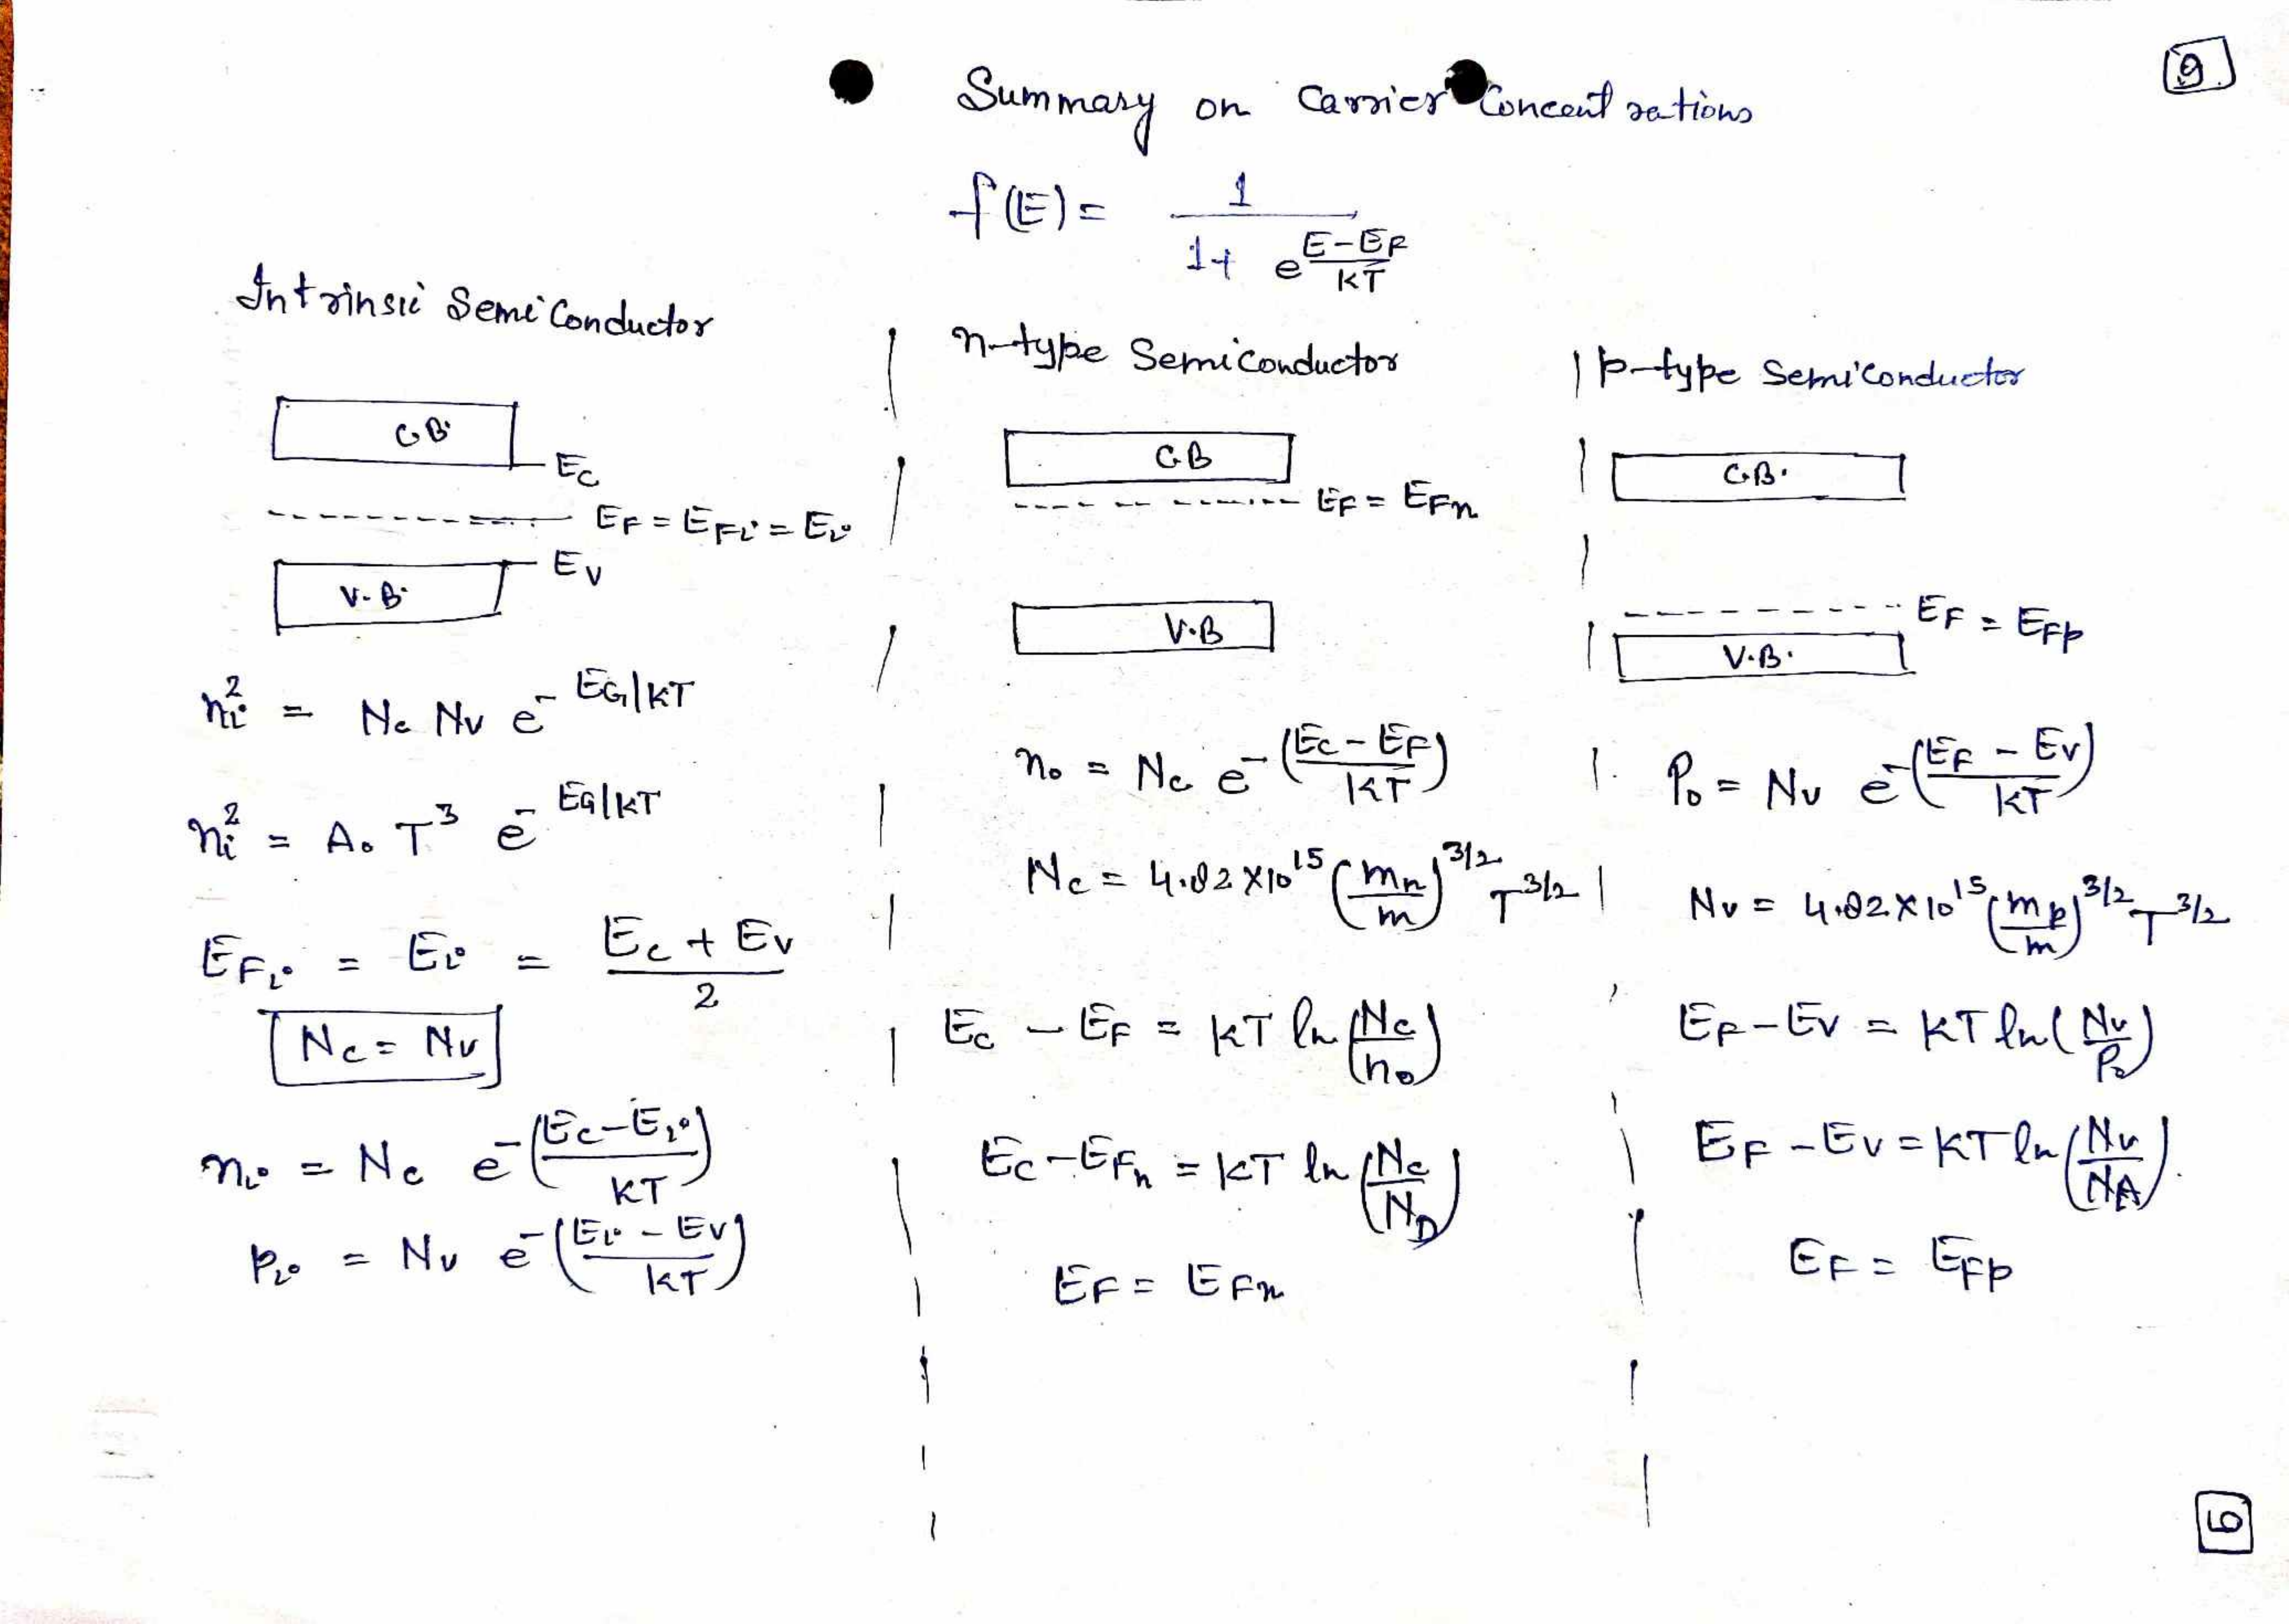 9
Summary on Carrier Concentrations
f(E) = 1 / (1 + e^((E-EF)/KT))
Intrinsic Semiconductor
C.B.
Ec
EF = EFi = Ei
Ev
V.B.
ni² = Nc Nv e^(- EG/KT)
ni² = Ao T³ e^(- EG/KT)
EFi = Ei = (Ec + Ev) / 2
Nc = Nv
ni = Nc e^(-((Ec-Ei)/KT))
pi = Nv e^(-((Ei - Ev)/KT))
n-type Semiconductor
C.B
EF = EFn
V.B
no = Nc e^(-((Ec - EF)/KT))
Nc = 4.82 X 10^15 (mn/m)^3/2 T^3/2
Ec - EF = KT ln (Nc/no)
Ec - EFn = KT ln (Nc/ND)
EF = EFn
p-type Semiconductor
C.B.
EF = EFp
V.B.
Po = Nv e^(-((EF - Ev)/KT))
Nv = 4.82 X 10^15 (mp/m)^3/2 T^3/2
EF - Ev = KT ln (Nv/Po)
EF - Ev = KT ln (Nv/NA)
EF = EFp
6